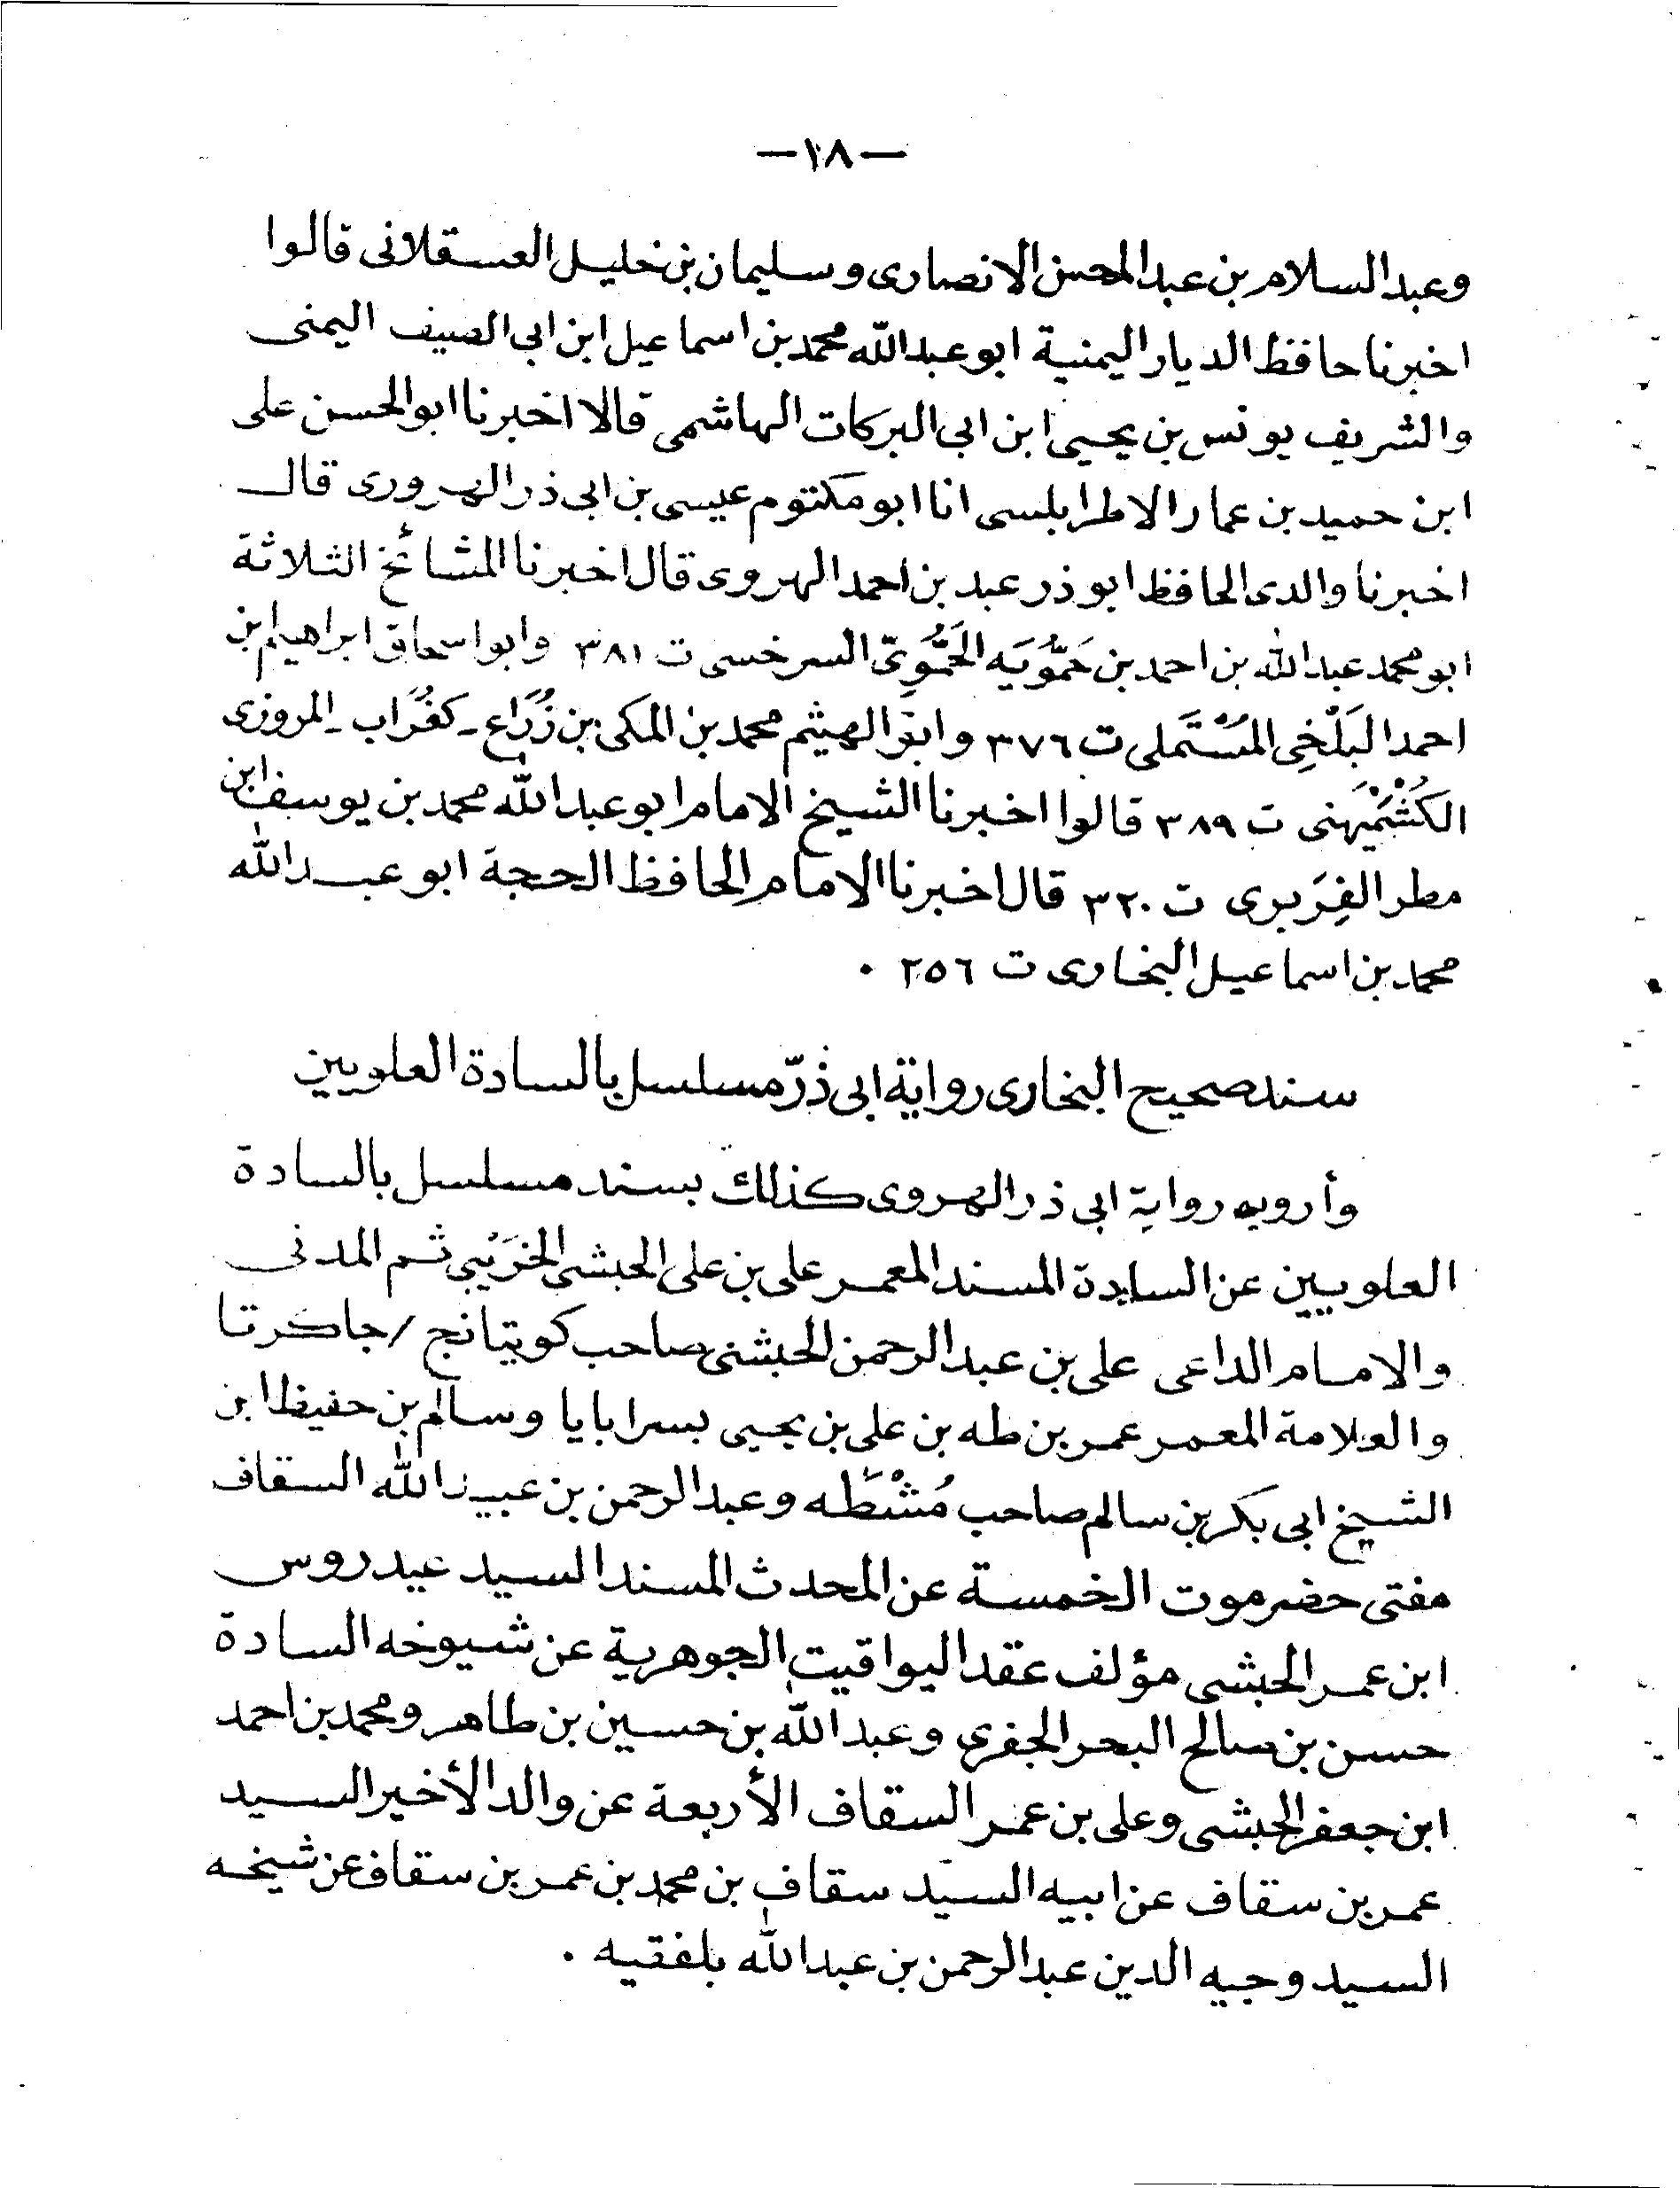 —١٨—
وعبد السلام بن عبد المحسن الانصارى وسليمان بن خليل العسقلانى قالوا
اخبرنا حافظ الديار اليمنية ابو عبد الله محمد بن اسماعيل ابن ابى الصيف اليمنى
والشريف يونس بن يحيى ابن ابى البركات الهاشمى قالا اخبرنا ابو الحسن على
ابن حميد بن عمار الاطرابلسى انا ابو مكتوم عيسى بن ابى ذر الهرورى قال
اخبرنا والدى الحافظ ابو ذر عبد بن احمد الهروى قال اخبرنا المشائخ الثلاثة
ابو محمد عبد الله بن احمد بن حَمُّويَه الحَمُّوِىّ السرخسى ت ٣٨١ وابو اسحاق ابراهيم بن
احمد البَلْخِى المُسْتَملى ت ٣٧٦ وابو الهيثم محمد بن المكى بن زُرَاع ـ كغُرَاب ـ المروزى
الكُشْمَيْهنى ت ٣٨٩ قالوا اخبرنا الشيخ الامام ابو عبد الله محمد بن يوسف ابن
مطر الفِرَبرى ت ٣٢٠ قال اخبرنا الامام الحافظ الحجة ابو عبد الله
محمد بن اسماعيل البخارى ت ٢٥٦ .
سند صحيح البخارى رواية ابى ذرّ مسلسل بالسادة العلويين
وأرويه رواية ابى ذر الهروى كذلك بسند مسلسل بالسادة
العلويين عن السادة المسند المعمر على بن على الحبشى الخرَيْبي ثم المدنى
والامام الداعى على بن عبد الرحمن الحبشى صاحب كويتانج / جاكرتا
والعلامة المعمر عمر بن طه بن على بن يحيى بسرابايا وسالم بن حفيظ ابن
الشيخ ابى بكر بن سالم صاحب مُشْطَه وعبد الرحمن بن عبيد الله السقاف
مفتى حضرموت الخمسة عن المحدث المسند السيد عيدروس
ابن عمر الحبشى مؤلف عقد اليواقيت الجوهرية عن شيوخه السادة
حسن بن صالح البحر الجفرى وعبد الله بن حسين بن طاهر ومحمد بن احمد
ابن جعفر الحبشى وعلى بن عمر السقاف الأربعة عن والد الأخير السيد
عمر بن سقاف عن ابيه السيد سقاف بن محمد بن عمر بن سقاف عن شيخه
السيد وجيه الدين عبد الرحمن بن عبد الله بلفقيه .